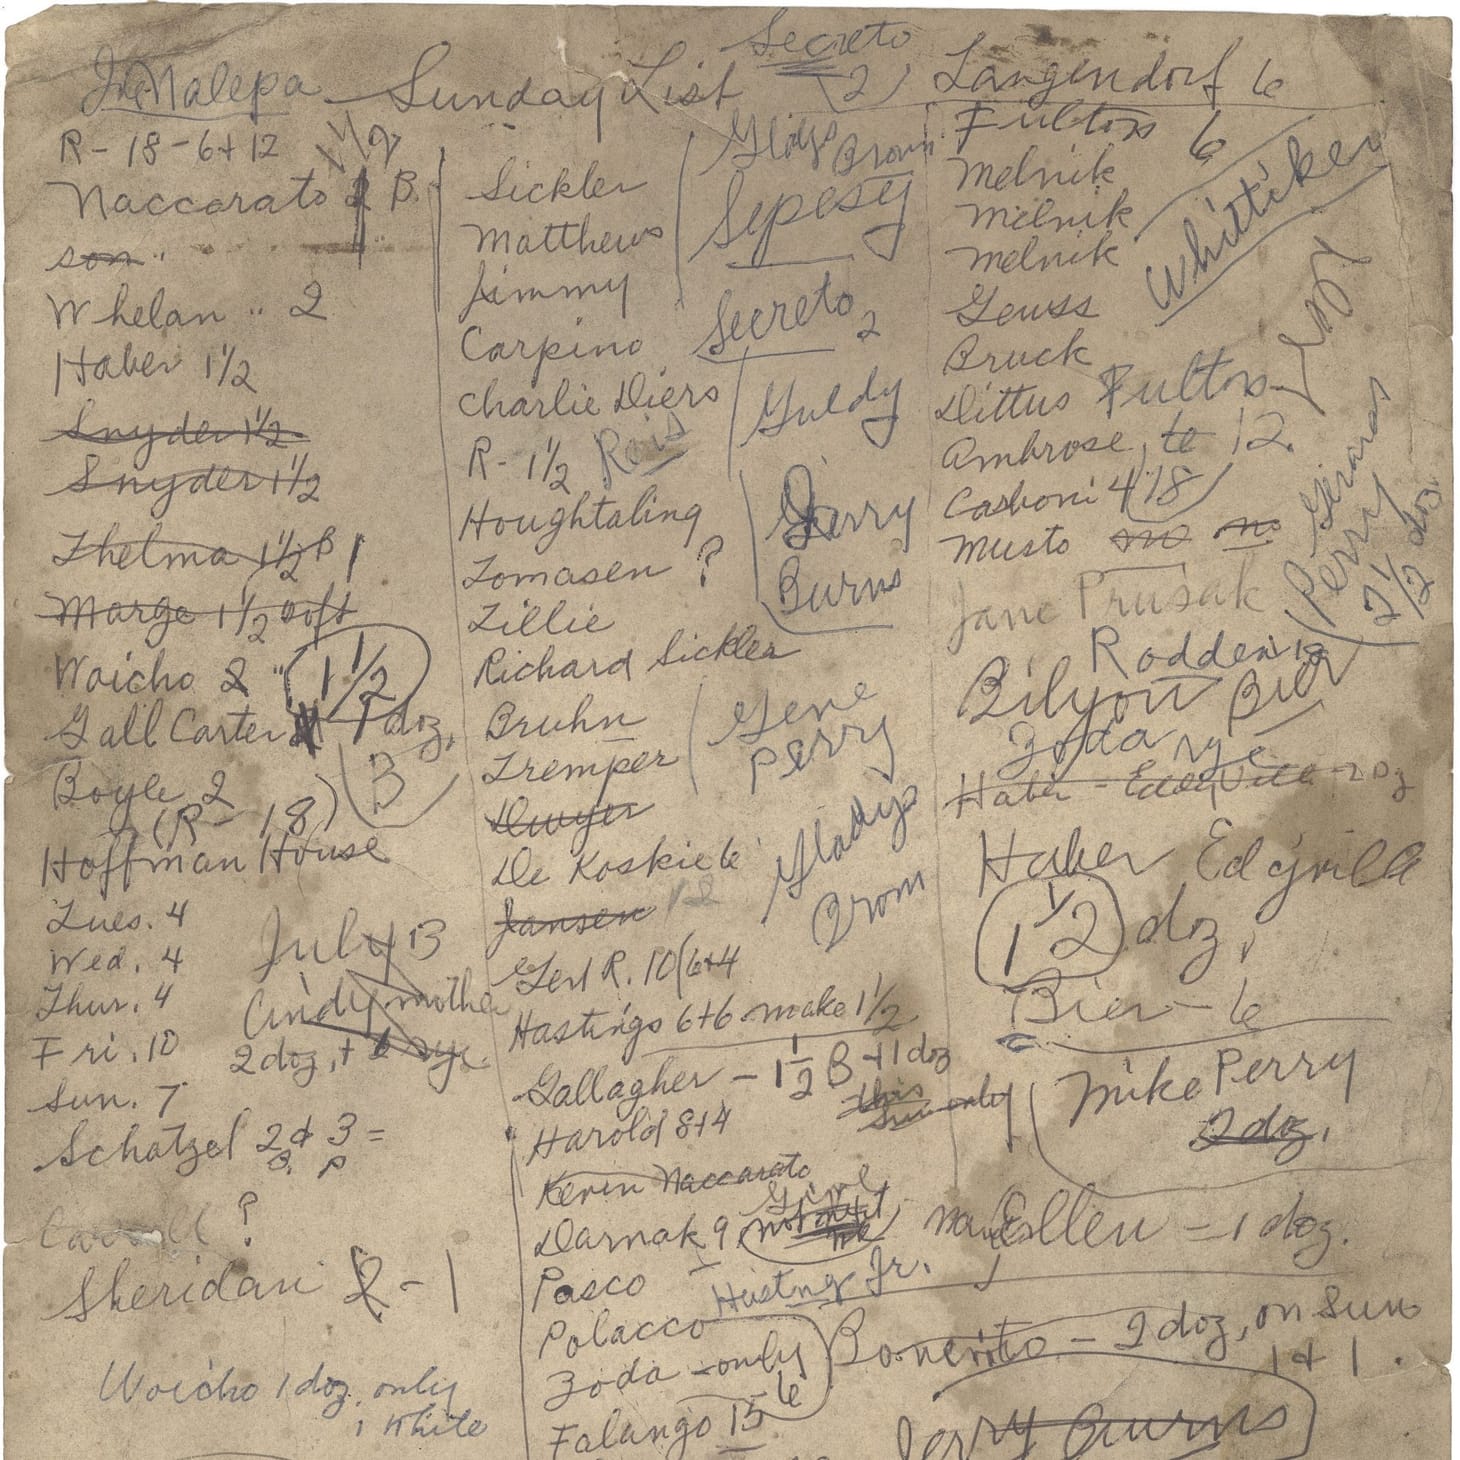 Malepa Sunday List
R - 18 - 6 + 12
1 1/2
Naccarato B.
son "
Whelan " 2
Haber 1 1/2
Snyder 1 1/2
Snyder 1 1/2
Thelma 1 1/2 B
Marge 1 1/2 soft
Woicho 2 " 1 1/2
Gall Carter 1 doz.
Boyle 2 B
(R - 18)
Hoffman House
Tues. 4
Wed. 4
Thur. 4
Fri. 10
Sun. 7
July 13
Cindy mother
2 doz, + 6 rye
Schatzel 2 + 3 =
B. P
Carroll ?
Sheridan 2 - 1
Woicho 1 doz. only
1 White
Sickler
Matthews
Jimmy
Carpino
Charlie Diers
R - 1 1/2 Reis
Houghtaling
Tomasen ?
Lillie
Richard Sickler
Bruhn
Tremper
Dwyer
De Koskie 6
Jansen 12
Gert R. 10 (6+4
Hastings 6+6 make 1 1/2
Gallagher - 1 1/2 B + 1 doz
this
Sun only
Harold 8+4
Kevin Naccarato
Darnak 9
Pasco
Hasting Jr.
Polacco
Zoda - only
6
Falango 15
Secreto
(2)
Gladys
Brown
Sepesy
Secreto 2
Guldy
Jerry
Burns
Gene
Perry
Gladys
Brown
Langendorf 6
Fultons 6
Melnik
Melnik
Melnik
Whittiker
Geuss
Bruck
Dittus Fultons
Ambrose, 12.
Casboni 4 18
Musto no no
Gerards
Perry
2 1/2 doz.
Jane Prusak
Rodden 12
Bilyou Bier
Zoda rye
Haber - Eddyville - 2 Dz
Haber Ed'yville
1 1/2 doz,
Bier - 6
Mike Perry
2 doz.
Mary Ellen = 1 doz.
Bonerito - 2 doz, on Sun
1 + 1.
Jerry Burns